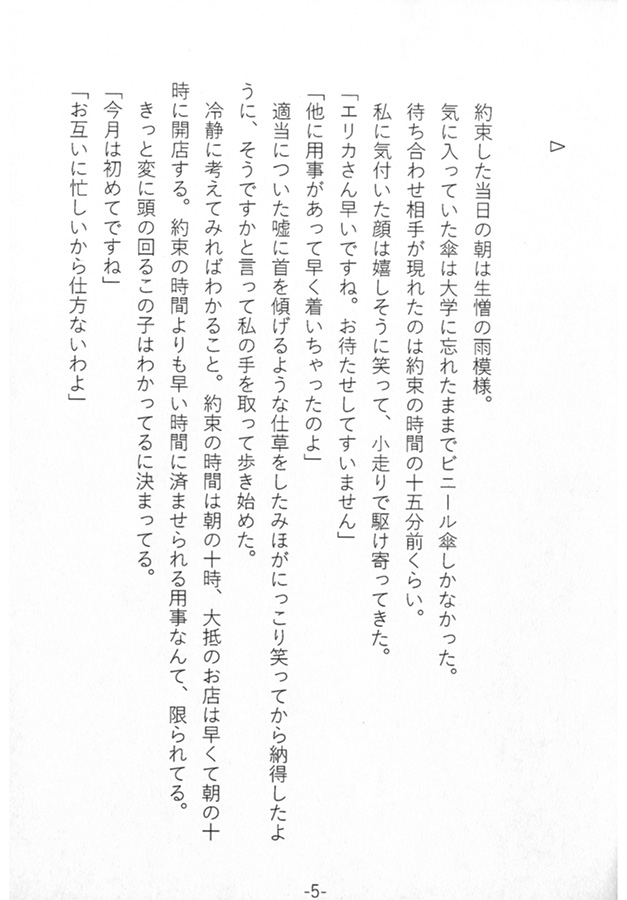 ▽
約束した当日の朝は生憎の雨模様。
気に入っていた傘は大学に忘れたままでビニール傘しかなかった。
待ち合わせ相手が現れたのは約束の時間の十五分前くらい。
私に気付いた顔は嬉しそうに笑って、小走りで駆け寄ってきた。
「エリカさん早いですね。お待たせしてすいません」
「他に用事があって早く着いちゃったのよ」
適当についた嘘に首を傾げるような仕草をしたみほがにっこり笑ってから納得したよ
うに、そうですかと言って私の手を取って歩き始めた。
冷静に考えてみればわかること。約束の時間は朝の十時、大抵のお店は早くて朝の十
時に開店する。約束の時間よりも早い時間に済ませられる用事なんて、限られてる。
きっと変に頭の回るこの子はわかってるに決まってる。
「今月は初めてですね」
「お互いに忙しいから仕方ないわよ」
-5-